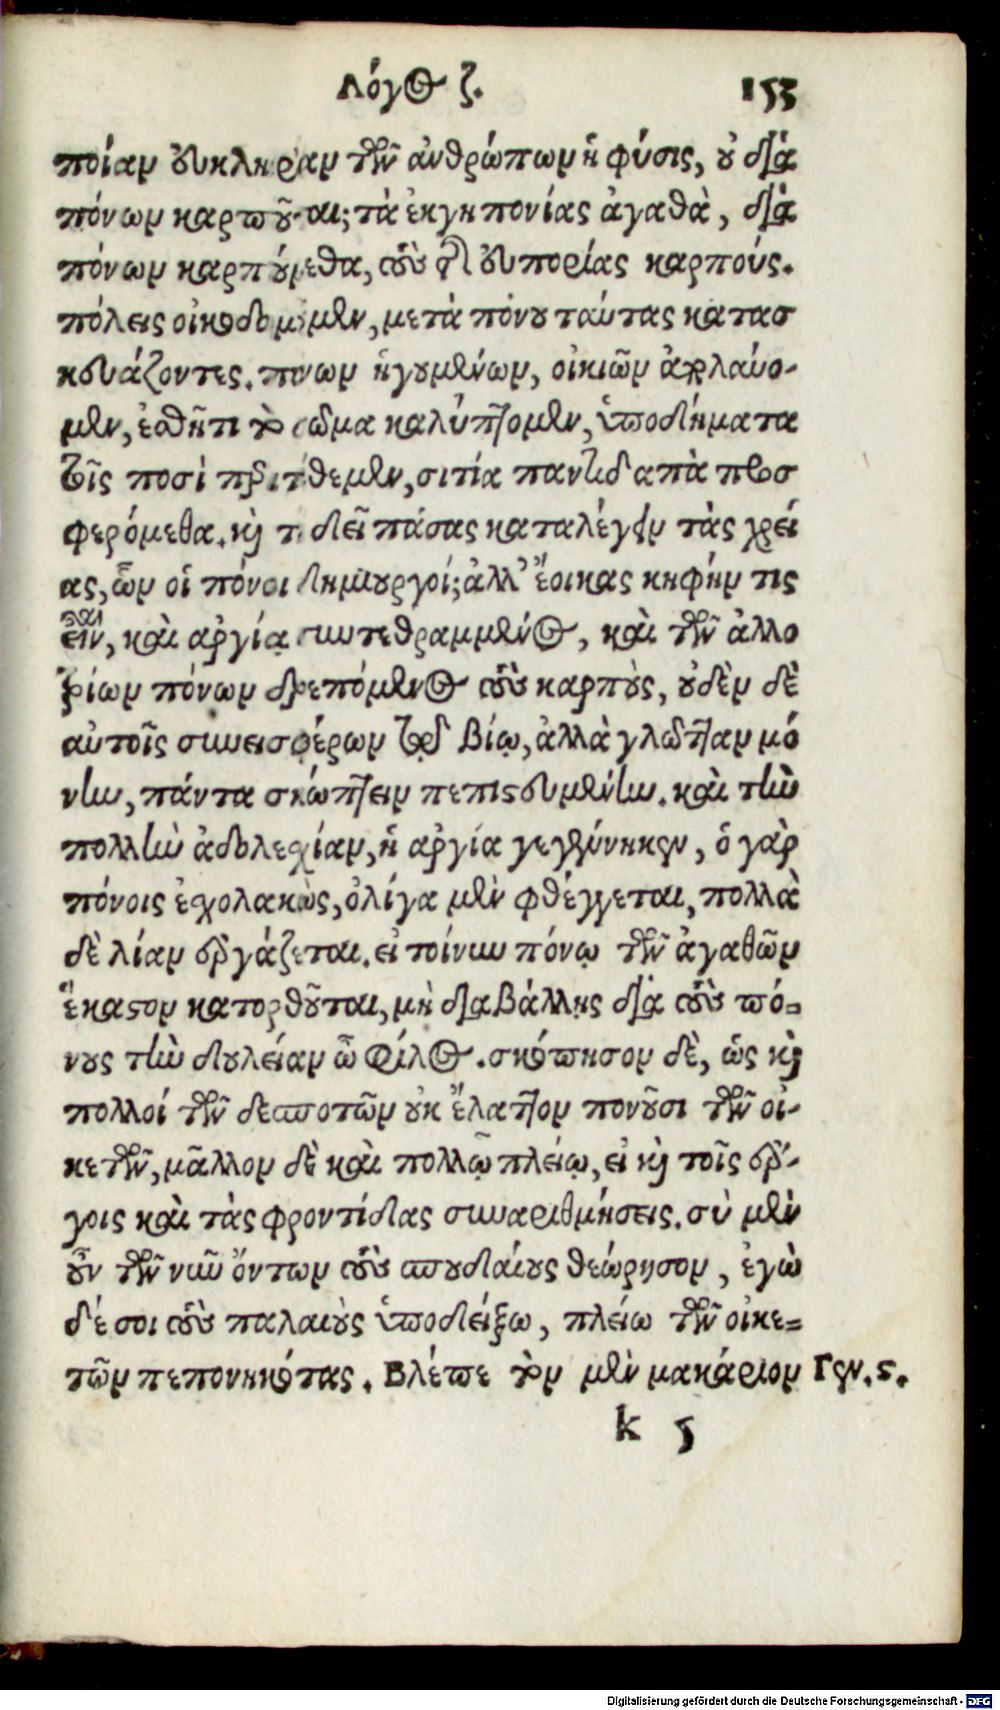 Λόγος ζ. 153
ποίαν εὐκληρίαν τῶν ἀνθρώπων ἡ φύσις, οὐ διὰ
πόνων καρποῦται; τὰ ἐκ γηπονίας ἀγαθὰ, διὰ
πόνων καρπούμεθα, τοὺς τῆς εὐπορίας καρπούς.
πόλεις οἰκοδομοῦμεν, μετὰ πόνου ταύτας κατασ
κευάζοντες. πόνων ἡγουμένων, οἰκιῶν ἀπολαύο-
μεν, ἐσθῆτι τὸ σῶμα καλύπτομεν, ὑποδήματα
τοῖς ποσὶ περιτίθεμεν, σιτία παντοδαπὰ προσ
φερόμεθα. καὶ τί δεῖ πάσας καταλέγειν τὰς χρεί
ας, ὧν οἱ πόνοι δημιουργοί; ἀλλ' ἔοικας κηφήν τις
εἶναι, καὶ ἀργίᾳ συντεθραμμένος, καὶ τῶν ἀλλο
τρίων πόνων δρεπόμενος τοὺς καρποὺς, οὐδὲν δὲ
αὐτοῖς συνεισφέρων τῷ βίῳ, ἀλλὰ γλῶτταν μό
νην, πάντα σκώπτειν πεπιστευμένην. καὶ τὴν
πολλὴν ἀδολεσχίαν, ἡ ἀργία γεγέννηκεν, ὁ γὰρ
πόνοις ἐσχολακὼς, ὀλίγα μὲν φθέγγεται, πολλὰ
δὲ λίαν ἐργάζεται. εἰ τοίνυν πόνῳ τῶν ἀγαθῶν
ἕκαστον κατορθοῦται, μὴ διαβάλλῃς διὰ τοὺς πό-
νους τὴν δουλείαν ὦ φίλος. σκόπησον δὲ, ὡς καὶ
πολλοί τῶν δεσποτῶν οὐκ ἔλαττον πονοῦσι τῶν οἰ-
κετῶν, μᾶλλον δὲ καὶ πολλῷ πλείῳ, εἰ καὶ τοῖς ἔρ-
γοις καὶ τὰς φροντίδας συναριθμήσεις. σὺ μὲν
οὖν τῶν νῦν ὄντων τοὺς σπουδαίους θεώρησον, ἐγὼ
δέ σοι τοὺς παλαιοὺς ὑποδείξω, πλείω τῶν οἰκε-
τῶν πεπονηκότας. Βλέπε τὸν μὲν μακάριον Γεν. ς.
k 5
Digitalisierung gefördert durch die Deutsche Forschungsgemeinschaft - DFG